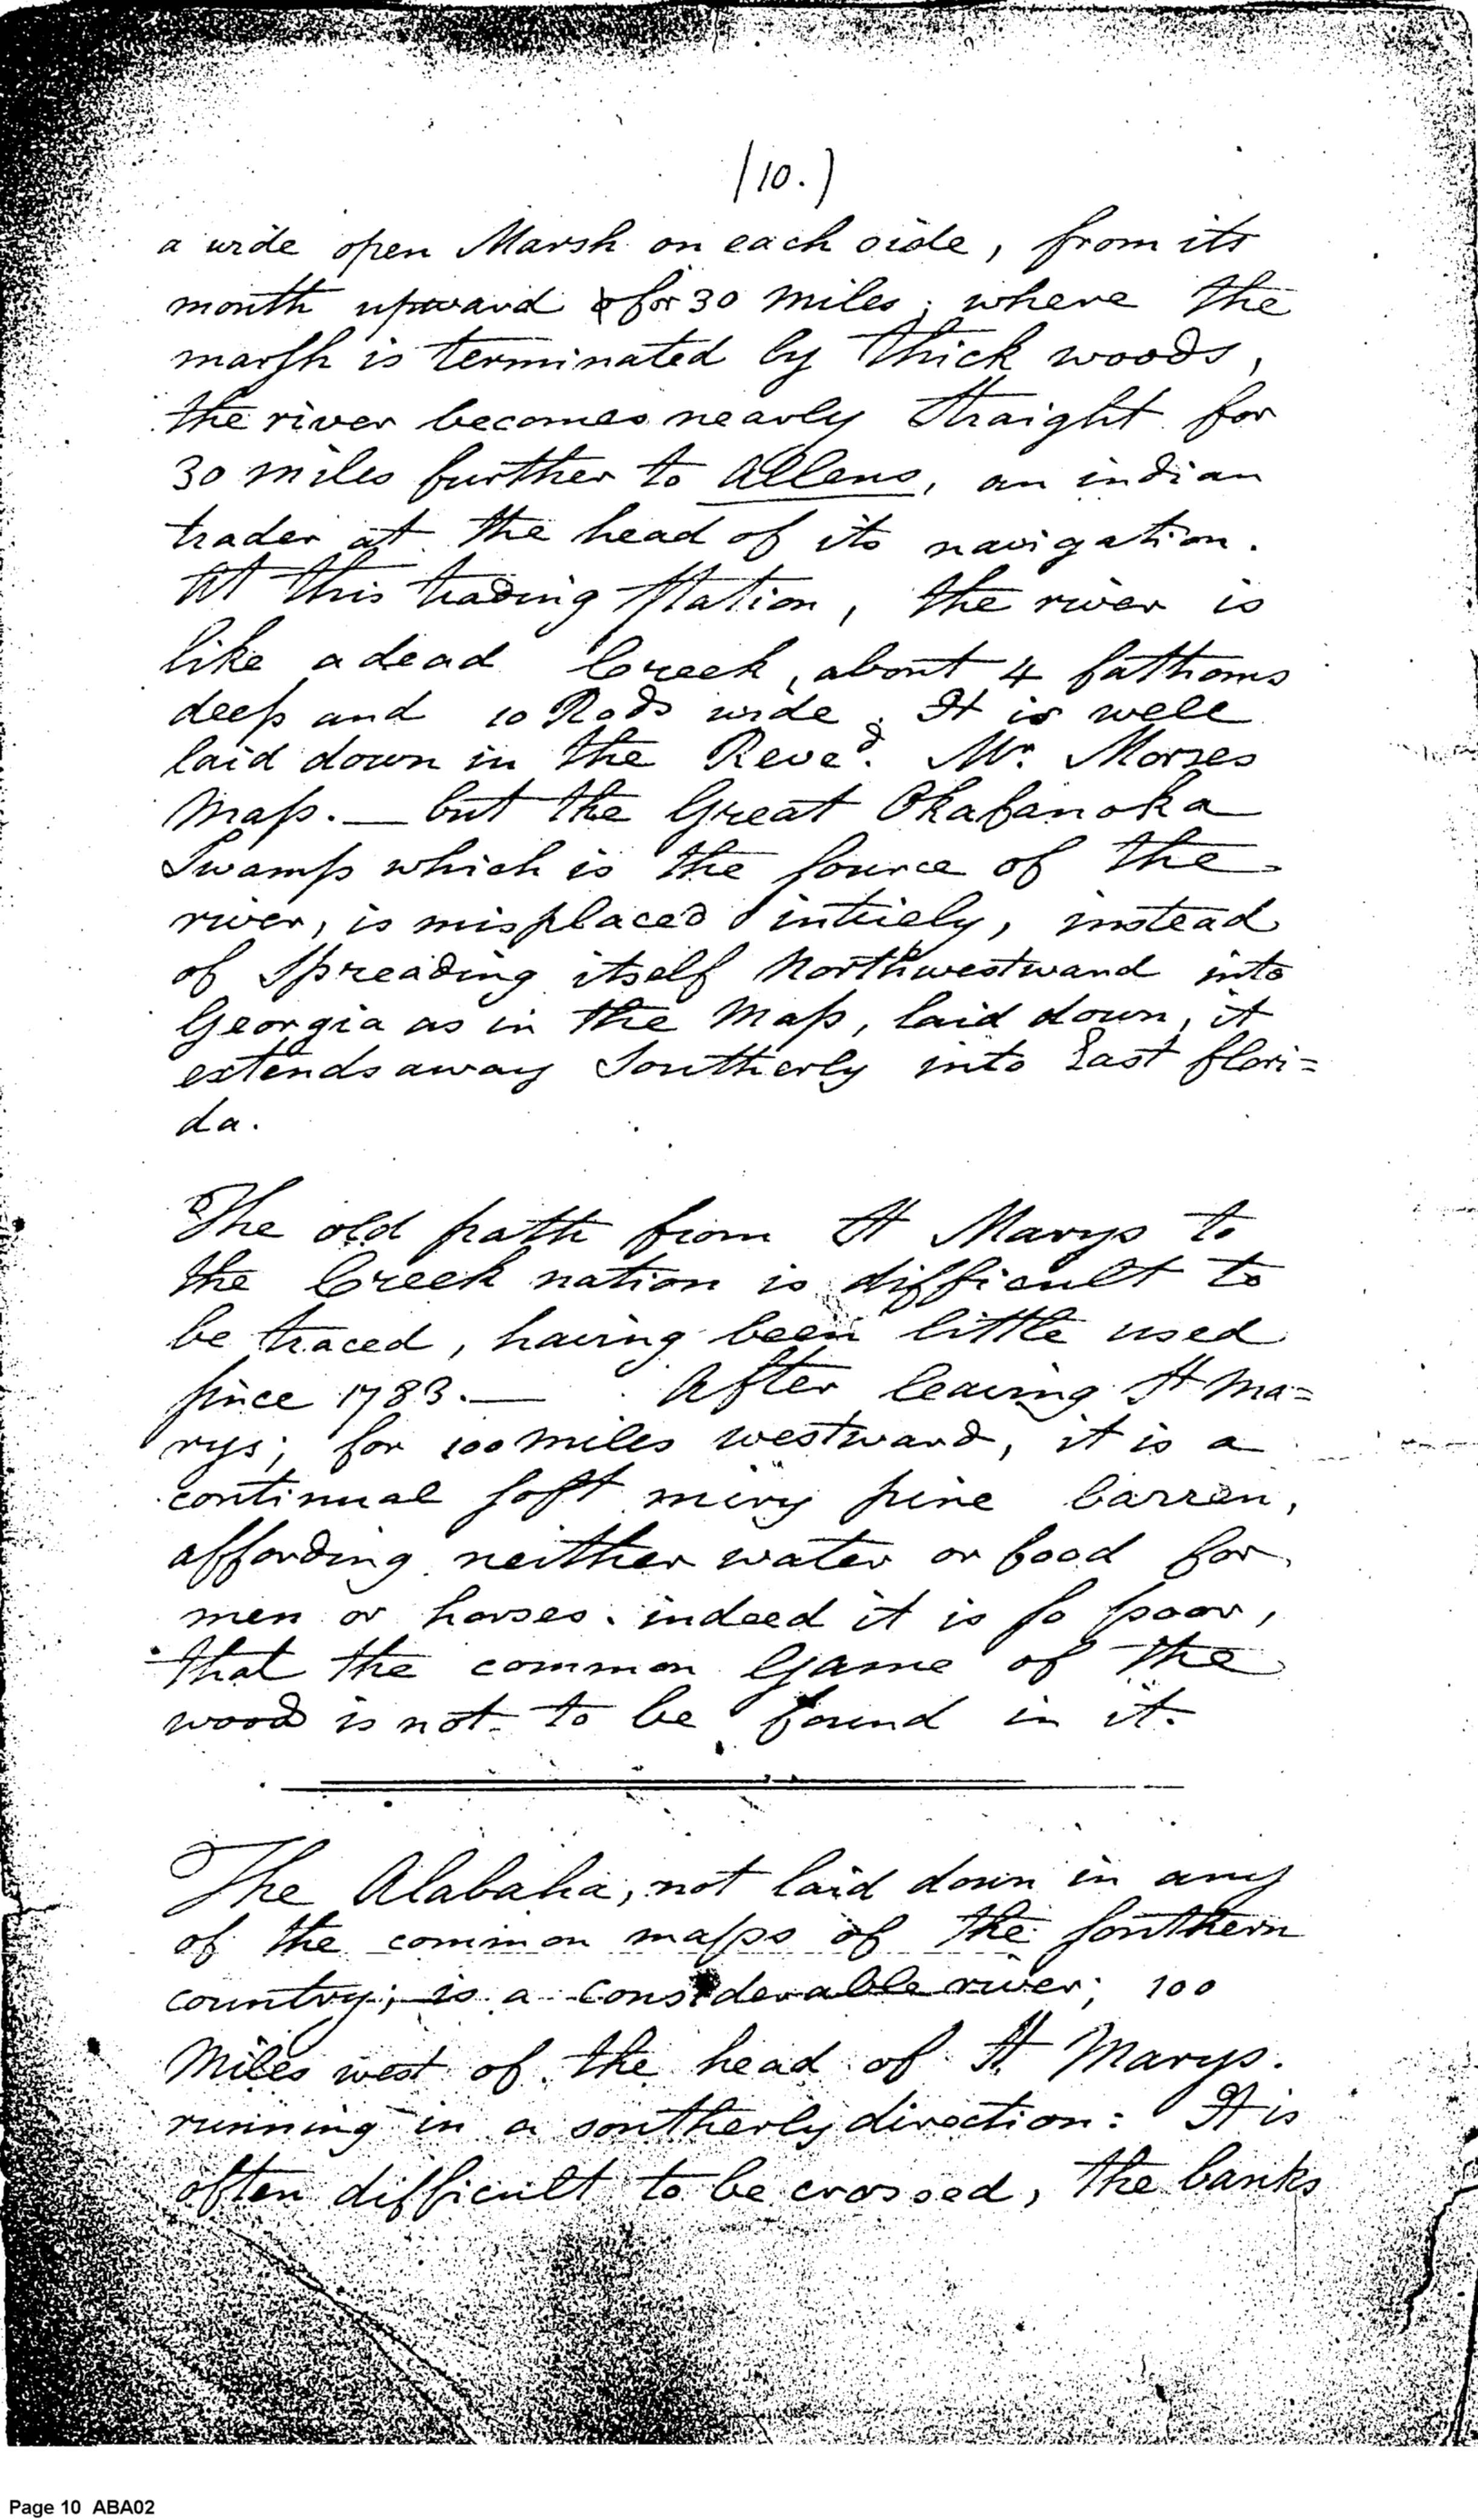 (10.)
a wide open Marsh on each side, from its
mouth upward for 30 miles; where the
marsh is terminated by thick woods,
the river becomes nearly straight for
30 miles further to Allens, an indian
trader at the head of its navigation.
At this trading station, the river is
like a dead Creek, about 4 fathoms
deep and 10 Rods wide. It is well
laid down in the Reved. Mr. Morses
Map. — but the Great Okafanoka
Swamp which is the source of the
river, is misplaced intirely, instead
of spreading itself Northwestward into
Georgia as in the Map, laid down, it
extends away Southerly into East flori=
da.
The old path from St Marys to
the Creek nation is difficult to
be traced, having been little used
since 1783. — After leaving St Ma=
rys; for 100 miles westward, it is a
continual soft miry pine barren,
affording neither water or food for
men or horses. indeed it is so poor,
that the common Game of the
wood is not to be found in it.
The Alabaha, not laid down in any
of the common maps of the southern
country; is a considerable river; 100
Miles west of the head of St Marys.
running in a southerly direction: It is
often difficult to be crossed, the banks
Page 10 ABA02